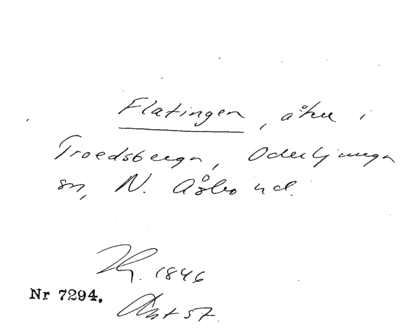 Flatingen, åker i
Troedsberga, Oderljunga
sn, N. Åsbo hd.
1846
Nr 7294.